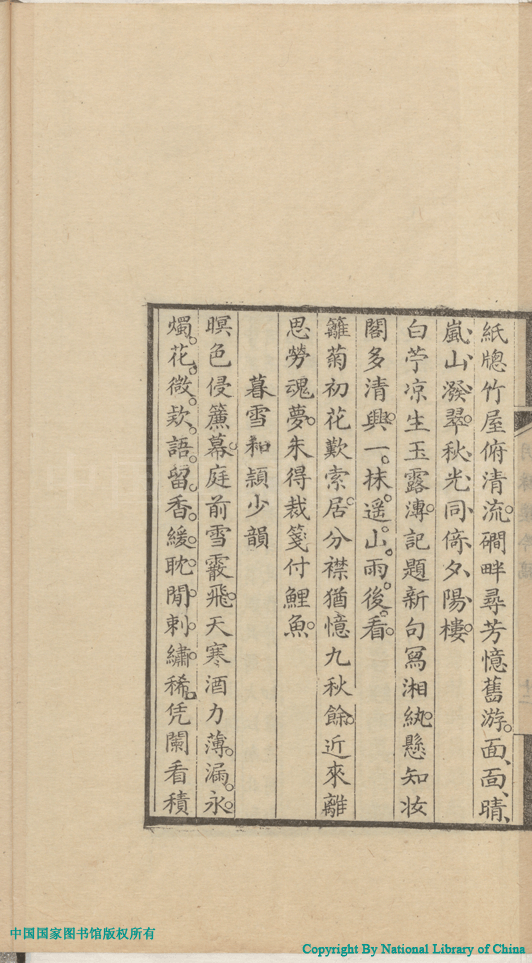 紙牕竹屋俯清流磵畔尋芳憶舊游面面晴
嵐山潑翠秋光同倚夕陽樓
白苧凉生玉露漙記題新句寫湘紈懸知妝
閣多清興一抹遥山雨後看
籬菊初花歎索居分襟猶憶九秋餘近來離
思勞魂夢朱得裁箋付鯉魚
暮雪和穎少韻
暝色侵簾幕庭前雪霰飛天寒酒力薄漏永
燭花微欵語留香緩耽閒刺繡稀凭闌看積
中国国家图书馆版权所有
Copyright By National Library of China